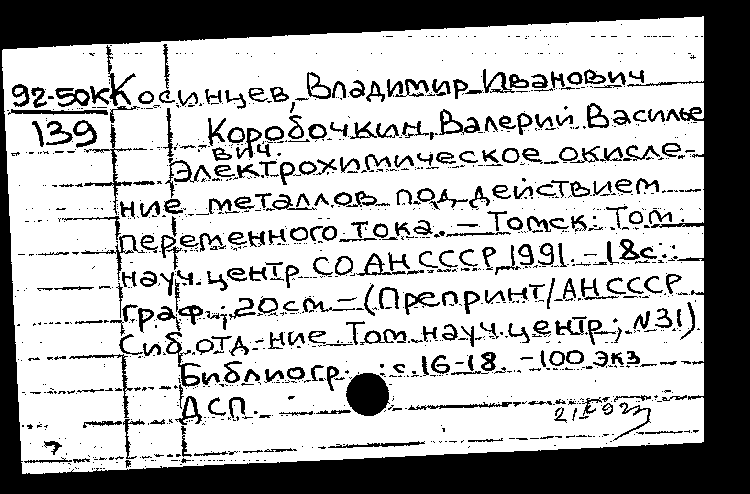 92-50К Косинцев, Владимир Иванович
139 Коробочкин, Валерий Василье
вич.
Электрохимическое окисле-
ние металлов под действием
переменного тока. – Томск: Том.
науч. центр СО АН СССР, 1991. – 18с.:
граф.; 20см. – (Препринт/АН СССР.
Сиб. отд-ние. Том. науч. центр; N31)
Библиогр.: с. 16-18. – 100 экз
ДСП.